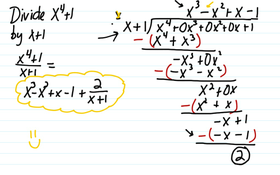 Divide x⁴+1
by x+1
x⁴+1
x+1 =
x³-x²+x-1+ 2/x+1
x³-x²+x-1
x+1 ) x⁴+0x³+0x²+0x+1
-(x⁴+x³)
-x³+0x²
-(-x³-x²)
x²+0x
-(x²+x)
-x+1
-(-x-1)
2